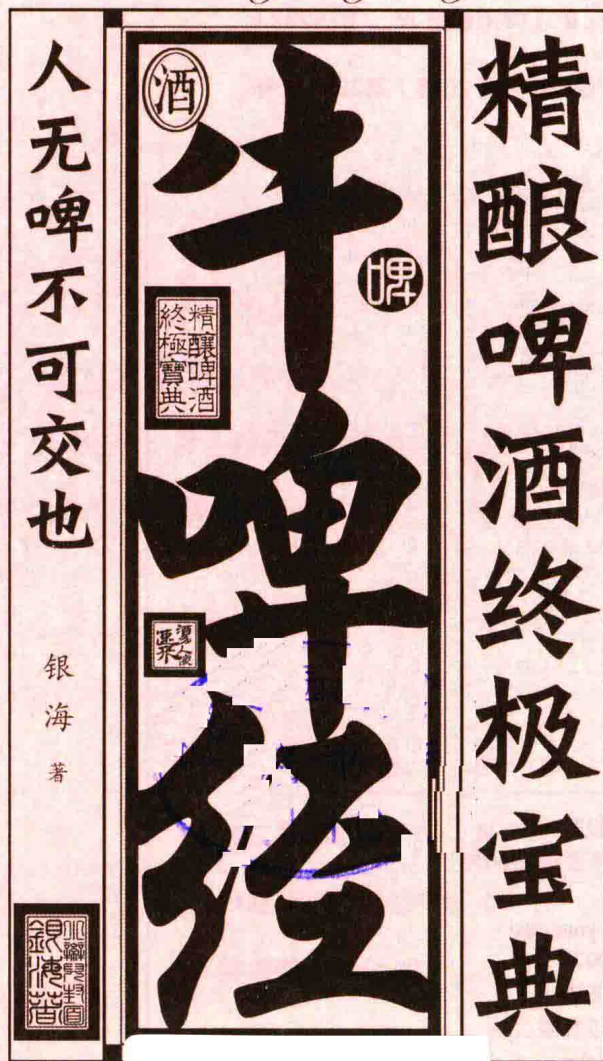 精酿啤酒终极宝典
酒
牛啤经
啤
精釀啤酒
終極寶典
人无啤不可交也
银海 著